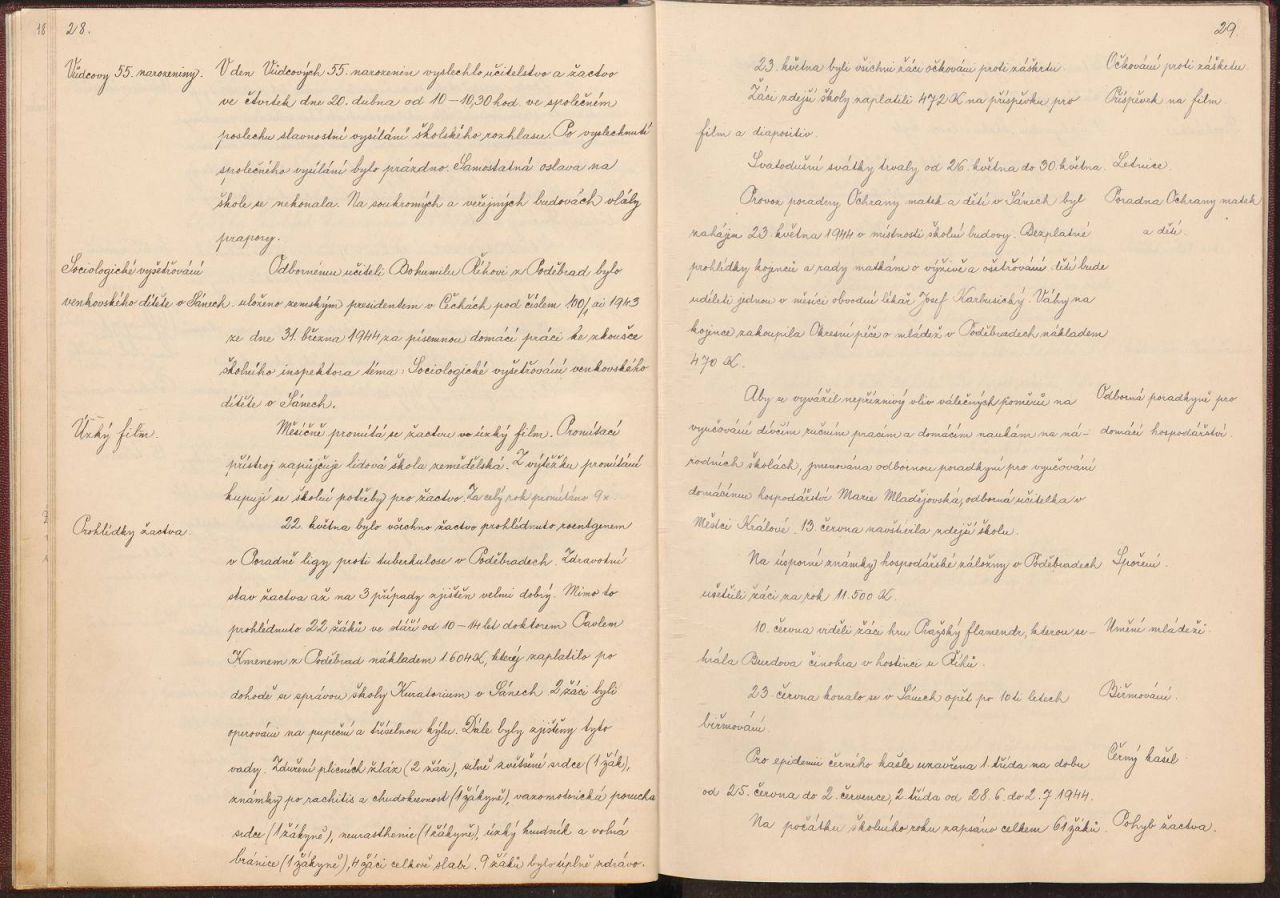 18 28.
Vůdcovy 55. narozeniny. V den Vůdcových 55. narozenin vyslechlo učitelstvo a žactvo
ve čtvrtek dne 20. dubna od 10–10,30 hod. ve společném
poslechu slavnostní vysílání školského rozhlasu. Po vyslechnutí
společného vysílání bylo prázdno. Samostatná oslava na
škole se nekonala. Na soukromých a veřejných budovách vlály
prapory.
Sociologické vyšetřování Odbornému učiteli Bohumilu Říhovi z Poděbrad bylo
venkovského dítěte v Sánech. uloženo zemským presidentem v Čechách pod číslem ai 1943
ze dne 31. března 1944 za písemnou domácí práci ke zkoušce
školního inspektora téma: Sociologické vyšetřování venkovského
dítěte v Sánech.
Úzký film. Měsíčně promítá se žactvu úzký film. Promítací
přístroj zapůjčuje lidová škola zemědělská. Z výtěžku promítání
kupují se školní potřeby pro žactvo. Za celý rok promítáno 9x
Prohlídky žactva. 22. května bylo všechno žactvo prohlédnuto roentgenem
v Poradně ligy proti tuberkulose v Poděbradech. Zdravotní
stav žactva až na 3 případy zjištěn velmi dobrý. Mimo to
prohlédnuto 22 žáků ve stáří od 10–14 let doktorem Pavlem
Kmenem z Poděbrad nákladem 1604 K, který zaplatilo po
dohodě se správou školy Kuratorium v Sánech. 2 žáci byli
operováni na pupeční a tříselnou kýlu. Dále byly zjištěny tyto
vady. Zduření plicních žláz (2 žáci), silné zvětšení srdce (1 žák),
známky po rachitis a chudokrevnost (1 žákyně), vazomotorická porucha
srdce (1 žákyně), neurasthenie (1 žákyně), úzký hrudník a volná
bránice (1 žákyně), 4 žáci celkově slabí. 9 žáků bylo úplně zdrávo.
29.
23. května byli všichni žáci očkováni proti záškrtu. Očkování proti záškrtu.
Žáci zdejší školy zaplatili 472 K na příspěvku pro Příspěvek na film.
film a diapositiv.
Svatodušní svátky trvaly od 26. května do 30. května. Letnice.
Provoz poradny Ochrany matek a dětí v Sánech byl Poradna Ochrany matek
zahájen 23. května 1944 v místnosti školní budovy. Bezplatné a dětí.
prohlídky kojenců a rady matkám o výživě a ošetřování dětí bude
udíleti jednou v měsíci obvodní lékař Josef Karbusický. Váhy na
kojence zakoupila Okresní péče o mládež v Poděbradech nákladem
470 K.
Aby se vyvážil nepříznivý vliv válečných poměrů na Odborná poradkyně pro
vyučování dívčím ručním pracím a domácím naukám na ná- domácí hospodářství.
rodních školách, jmenována odbornou poradkyní pro vyučování
domácímu hospodářství Marie Mladějovská, odborná učitelka v
Městci Králové. 13. června navštívila zdejší školu.
Na úsporné známky hospodářské záložny v Poděbradech Spoření.
ušetřili žáci za rok 11.500 K.
10. června viděli žáci hru Pražský flamendr, kterou se- Umění mládeži.
hrála Burdova činohra v hostinci u Říhů.
23. června konalo se v Sánech opět po 10ti letech Biřmování.
biřmování.
Pro epidemii černého kašle uzavřena 1. třída na dobu Černý kašel.
od 25. června do 2. července, 2. třída od 28. 6. do 2. 7. 1944.
Na počátku školního roku zapsáno celkem 61 žáků. Pohyb žactva.